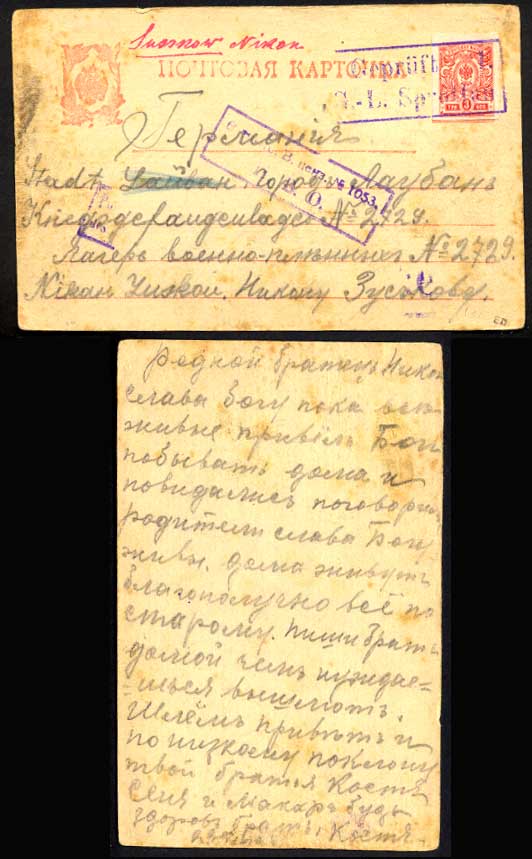 Susnow Nikon
ПОЧТОВАЯ КАРТОЧКА
Geprüft
Германія
Stadt Лайбан Городъ Лаубанъ
№ 1053.
№ 2729.
Лагерь военно-плѣнныхъ № 2729.
Никону Зуськову.
Родной братецъ Никон
слава Богу пока всѣ
живые привёлъ Богъ
побывать дома и
повидались поговорили
родители слава Богу
живы. дома живутъ
благополучно всё по
старому. пиши братъ
домой чемъ нуждае-
-шься вышлютъ.
Шлёмъ привѣтъ и
по низкому поклону
твои братья Костя
и Макаръ будь
здоровъ братъ. Костя